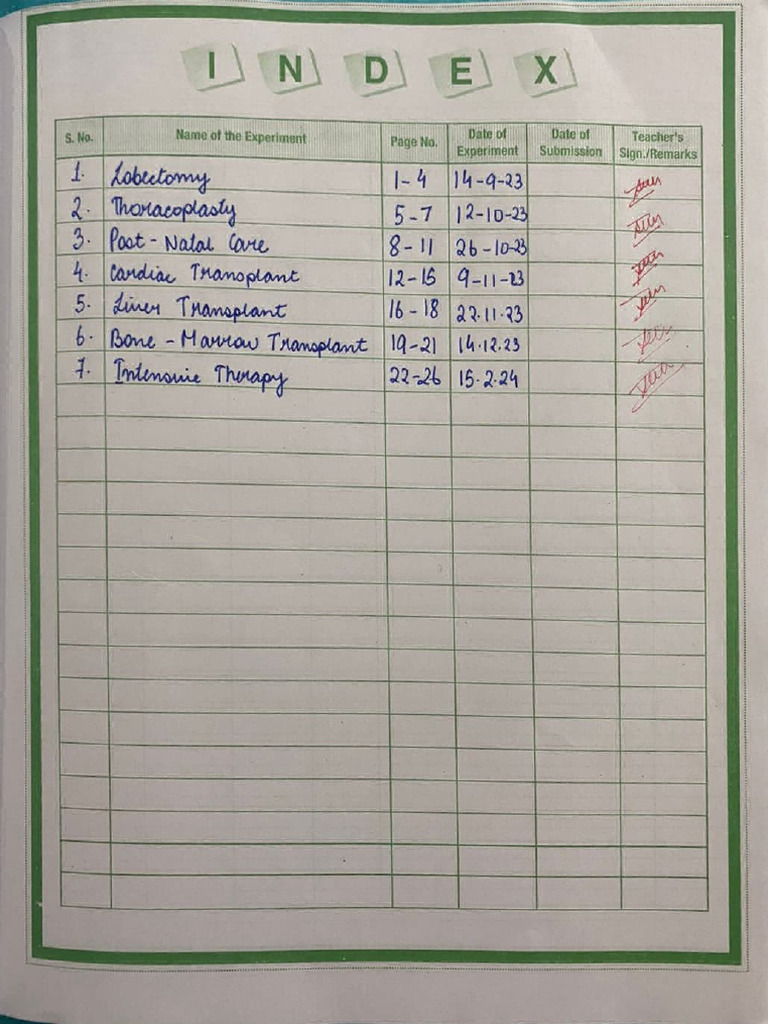 I N D E X
S. No. Name of the Experiment Page No. Date of Experiment Date of Submission Teacher's Sign./Remarks
1. Lobectomy 1-4 14-9-23
2. Thoracoplasty 5-7 12-10-23
3. Post-Natal Care 8-11 26-10-23
4. Cardiac Transplant 12-15 9-11-23
5. Liver Transplant 16-18 22.11.23
6. Bone-Marrow Transplant 19-21 14.12.23
7. Intensive Therapy 22-26 15.2.24